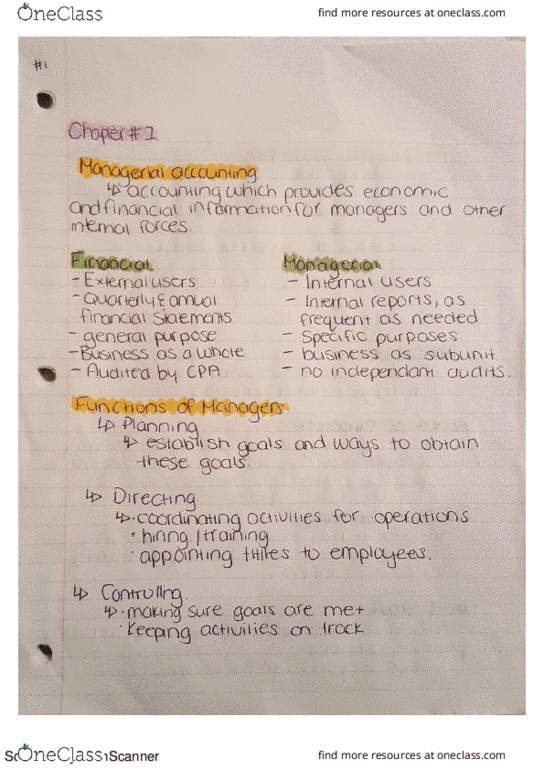 OneClass find more resources at oneclass.com
#1
Chaper #1
Managerial accounting
↳ accounting which provides economic
and financial information for managers and other
internal forces.
Financial
- External users
- Quarterly & annual
financial statements
- general purpose
- Business as a whole
- Audited by CPA
Managerial
- Internal users
- Internal reports, as
frequent as needed
- Specific purposes
- business as subunit
- no independant audits.
Functions of Managers
↳ Planning
↳ establish goals and ways to obtain
these goals.
↳ Directing
↳ • coordinating activities for operations
• hiring / training
• appointing titles to employees.
↳ Controlling.
↳ • making sure goals are met
• Keeping activities on track
OneClass Scanner find more resources at oneclass.com